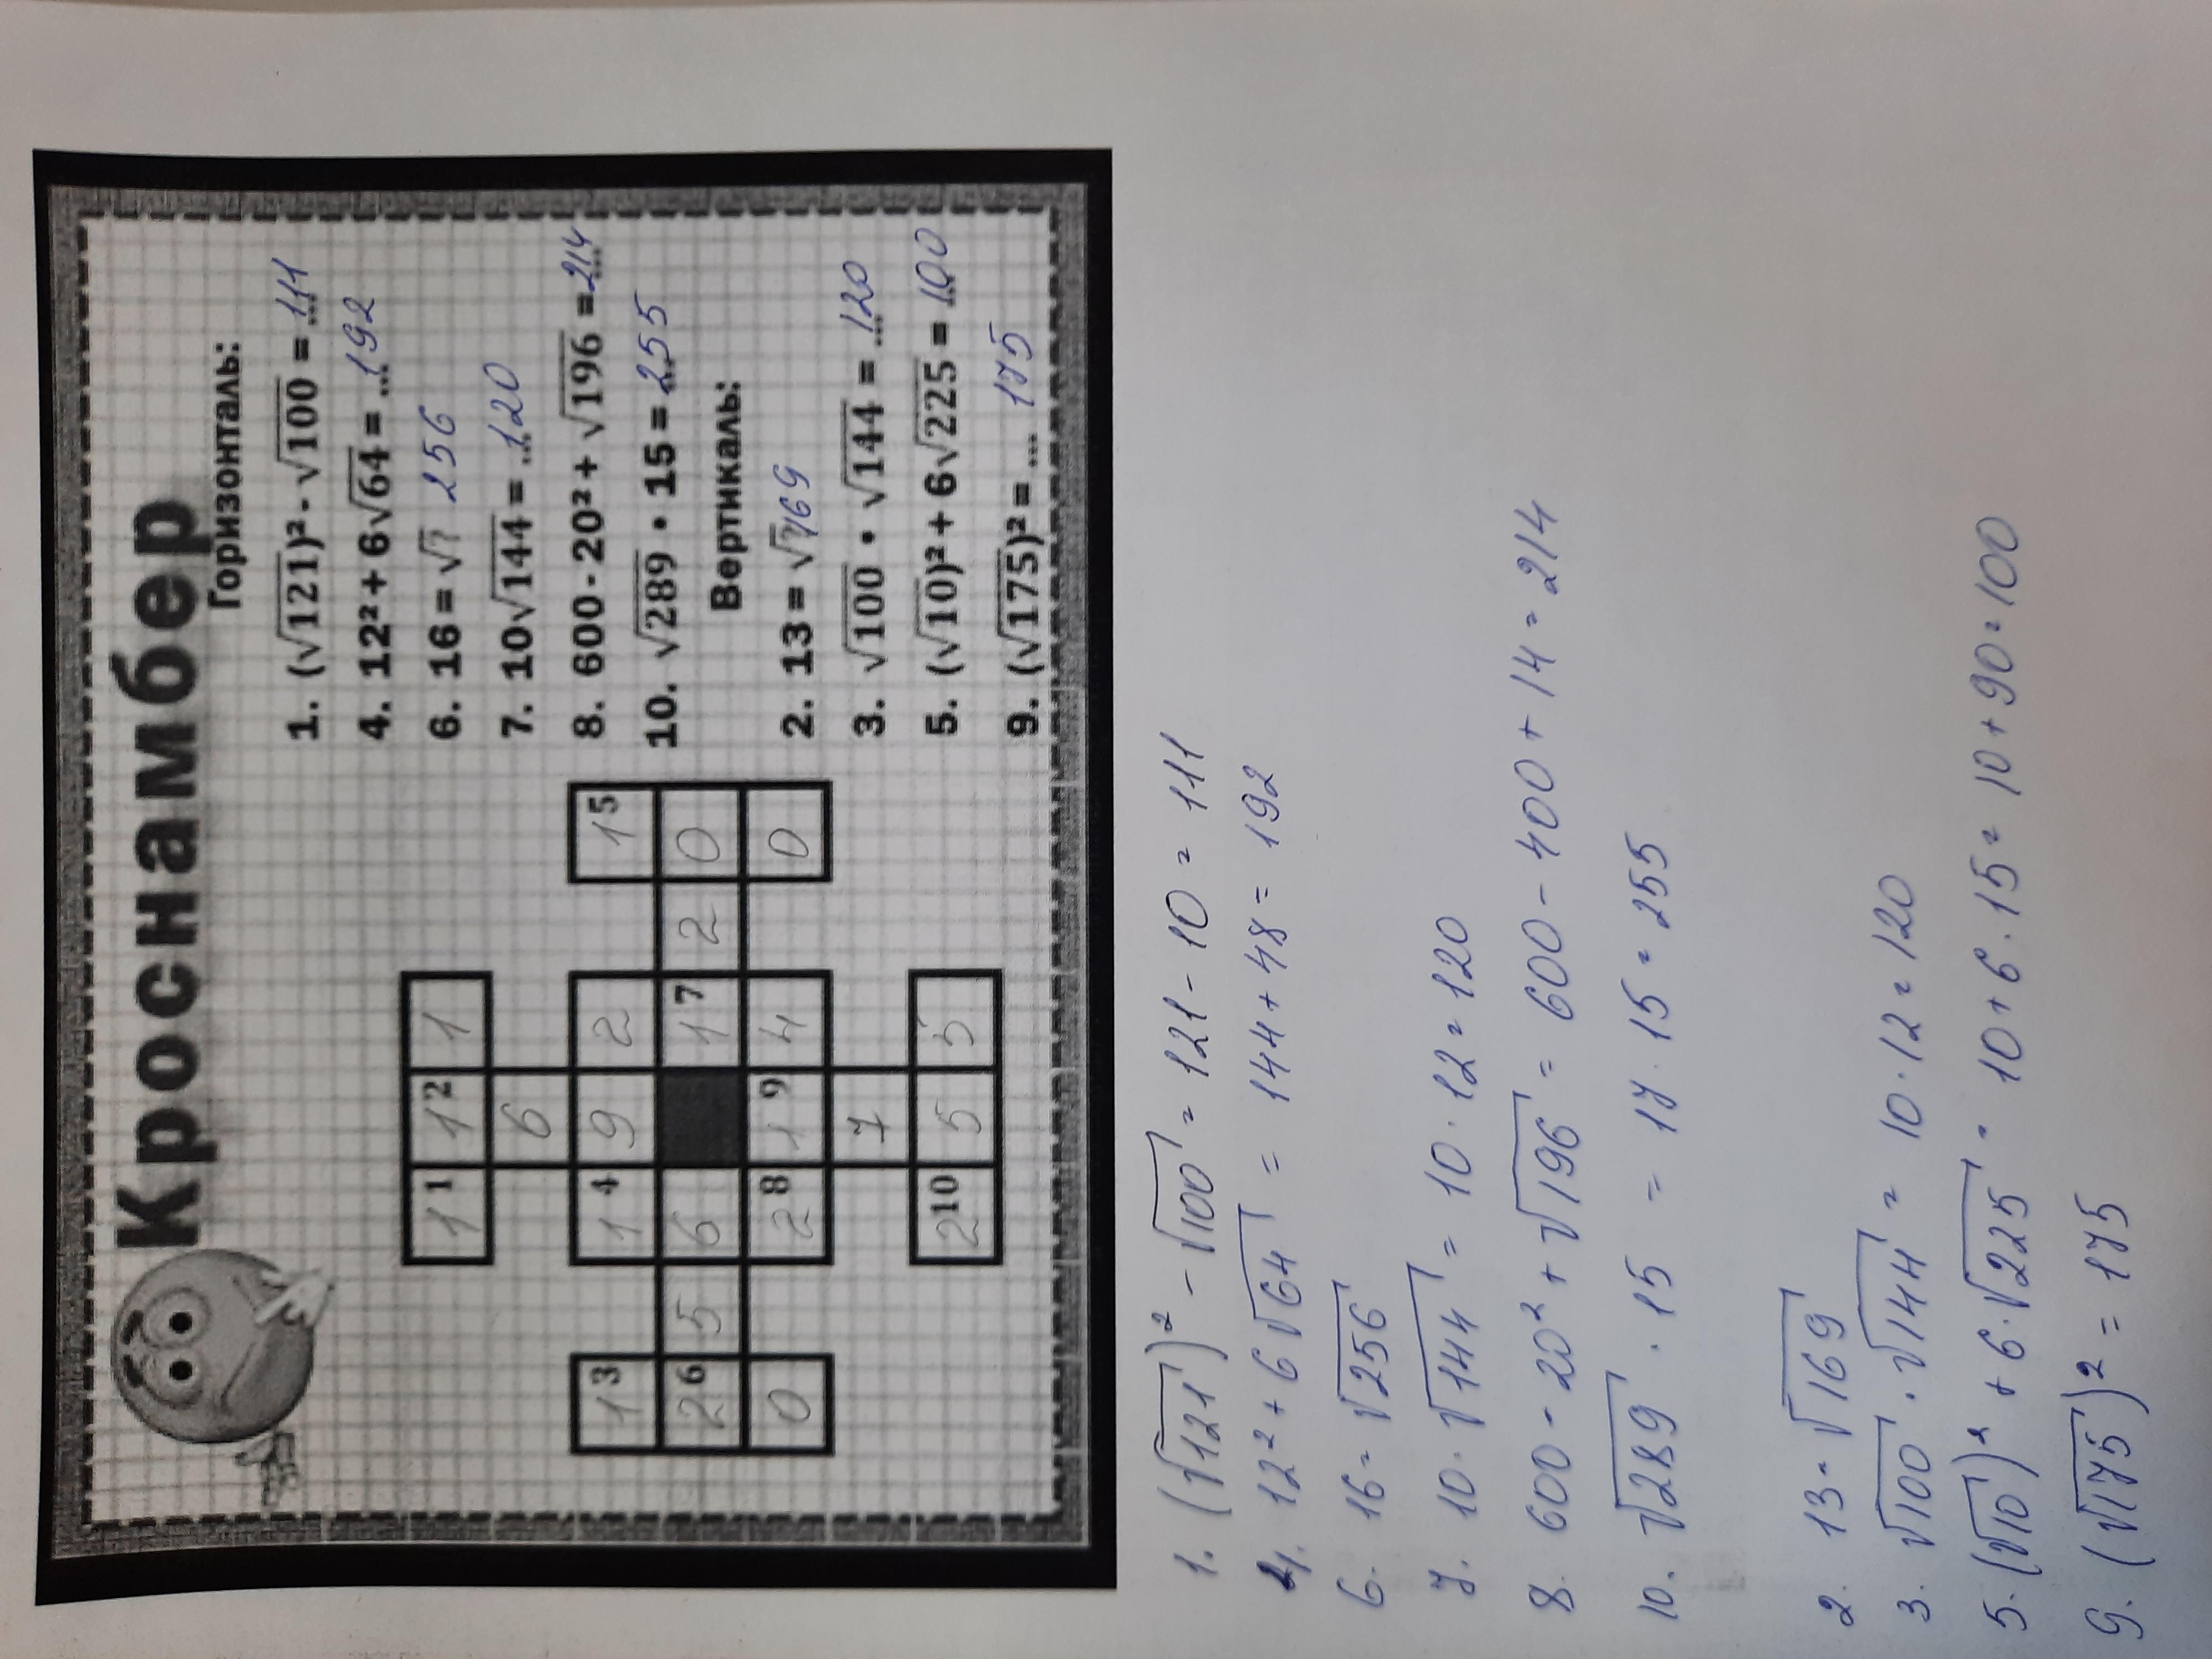 Кроснамбер
Горизонталь:
1. (√121)² - √100 = ...111
4. 12² + 6√64 = ...192
6. 16 = √? 256
7. 10√144 = ...120
8. 600 - 20² + √196 = ...214
10. √289 • 15 = ...255
Вертикаль:
2. 13 = √? 169
3. √100 • √144 = ...120
5. (√10)² + 6√225 = ...100
9. (√175)² = ... 175
1 1 1 2 1
6
1 3 1 4 9 2 1 5
2 6 5 6 1 7 2 0
0 2 8 1 9 4 0
7
2 10 5 5
1. (√121)² - √100 = 121 - 10 = 111
4. 12² + 6√64 = 144 + 48 = 192
6. 16 = √256
7. 10 · √144 = 10 · 12 = 120
8. 600 - 20² + √196 = 600 - 400 + 14 = 214
10. √289 · 15 = 17 · 15 = 255
2. 13 = √169
3. √100 · √144 = 10 · 12 = 120
5. (√10)² + 6 · √225 = 10 + 6 · 15 = 10 + 90 = 100
9. (√175)² = 175